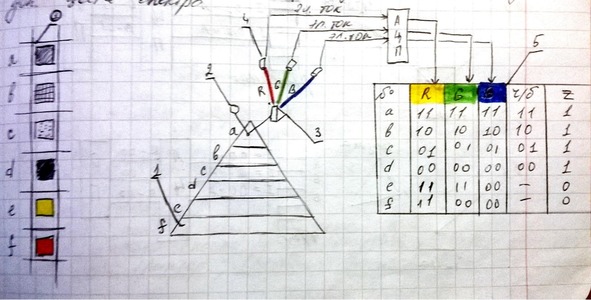 эл. ток
эл. ток
эл. ток
А
Ц
П
4
5
2
3
1
R
G
B
a
b
c
d
e
f
a
b
c
d
e
f
R G B ч/б Z
a 11 11 11 11 1
b 10 10 10 10 1
c 01 01 01 01 1
d 00 00 00 00 1
e 11 11 00 — 0
f 11 00 00 — 0